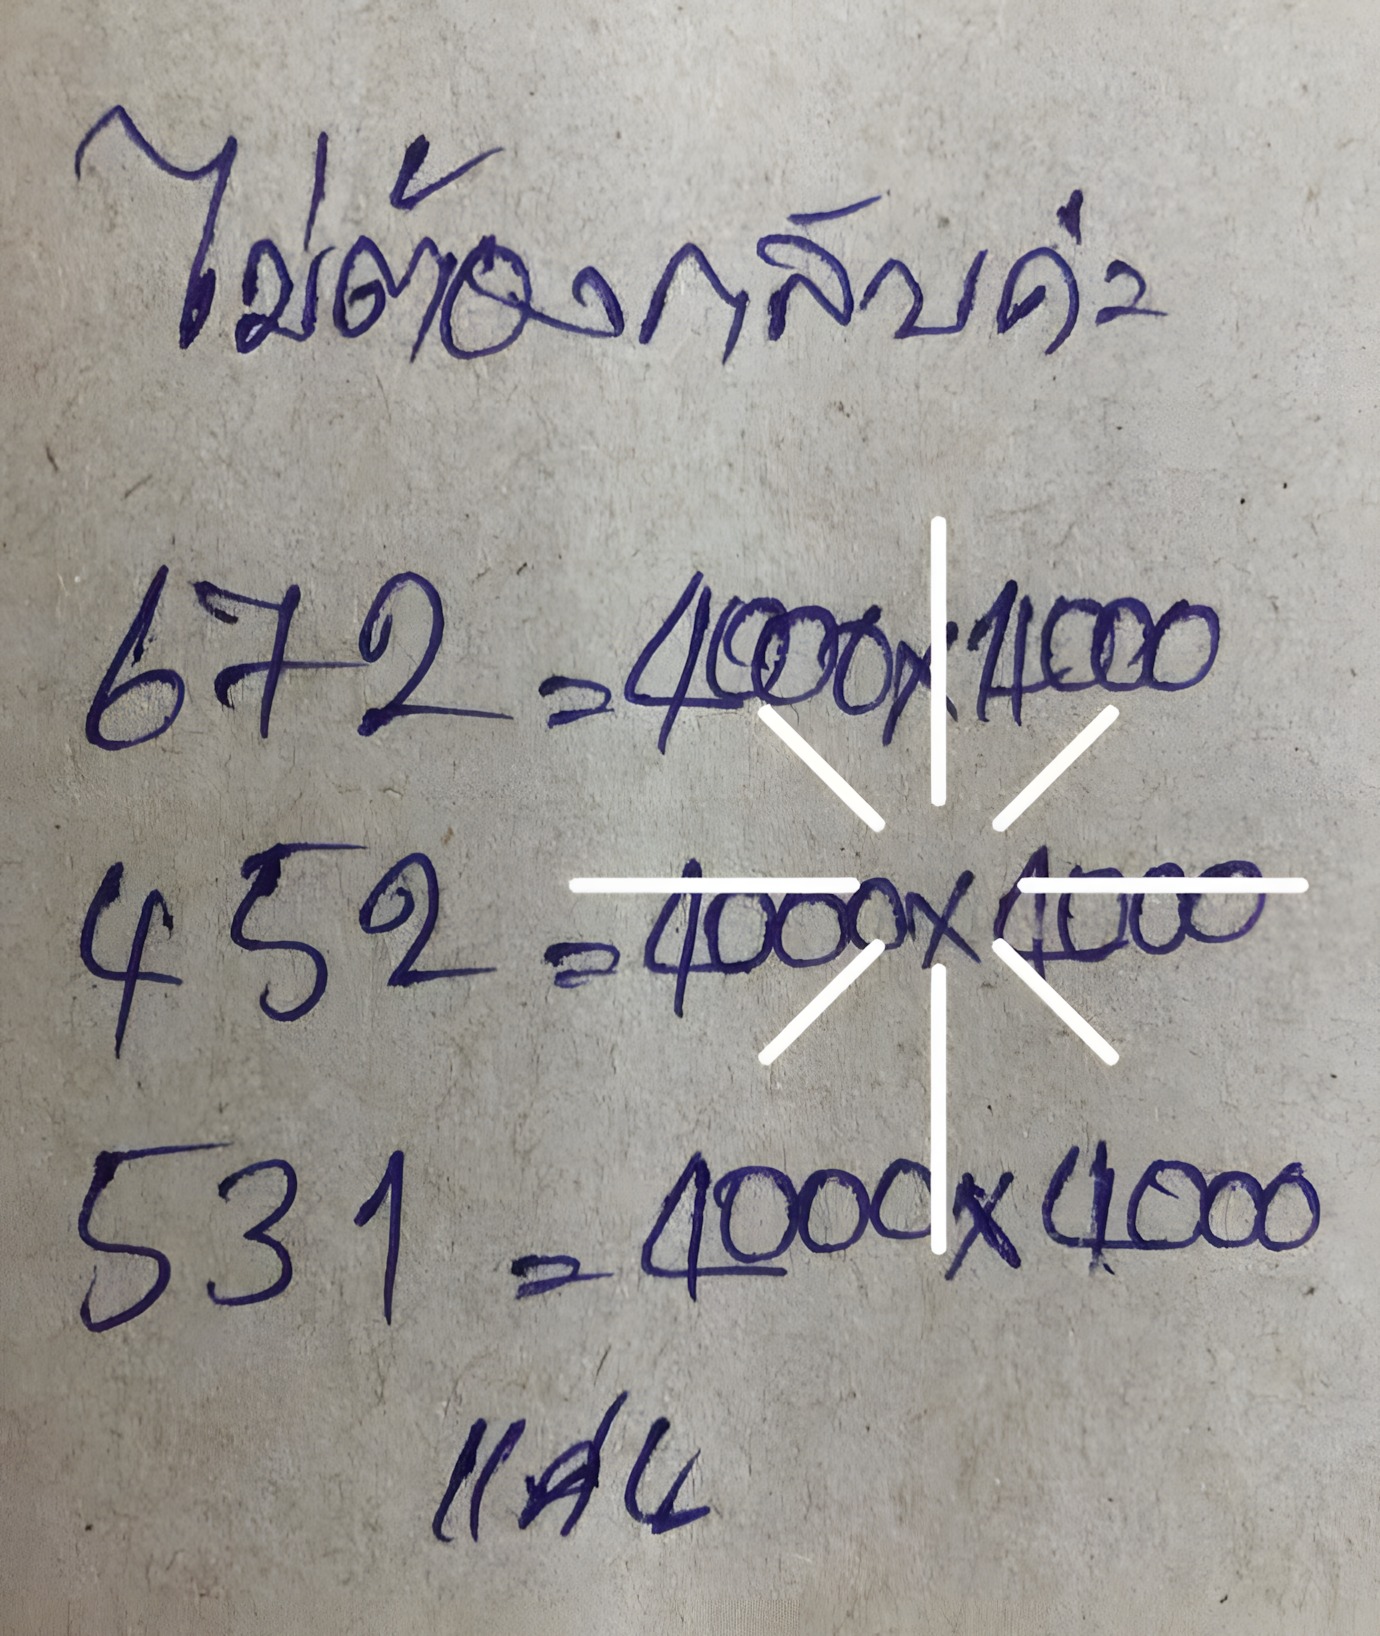 ไม่ต้องกลับค่ะ
672 = 4000x4000
452 = 4000x4000
531 = 4000x4000
แคน